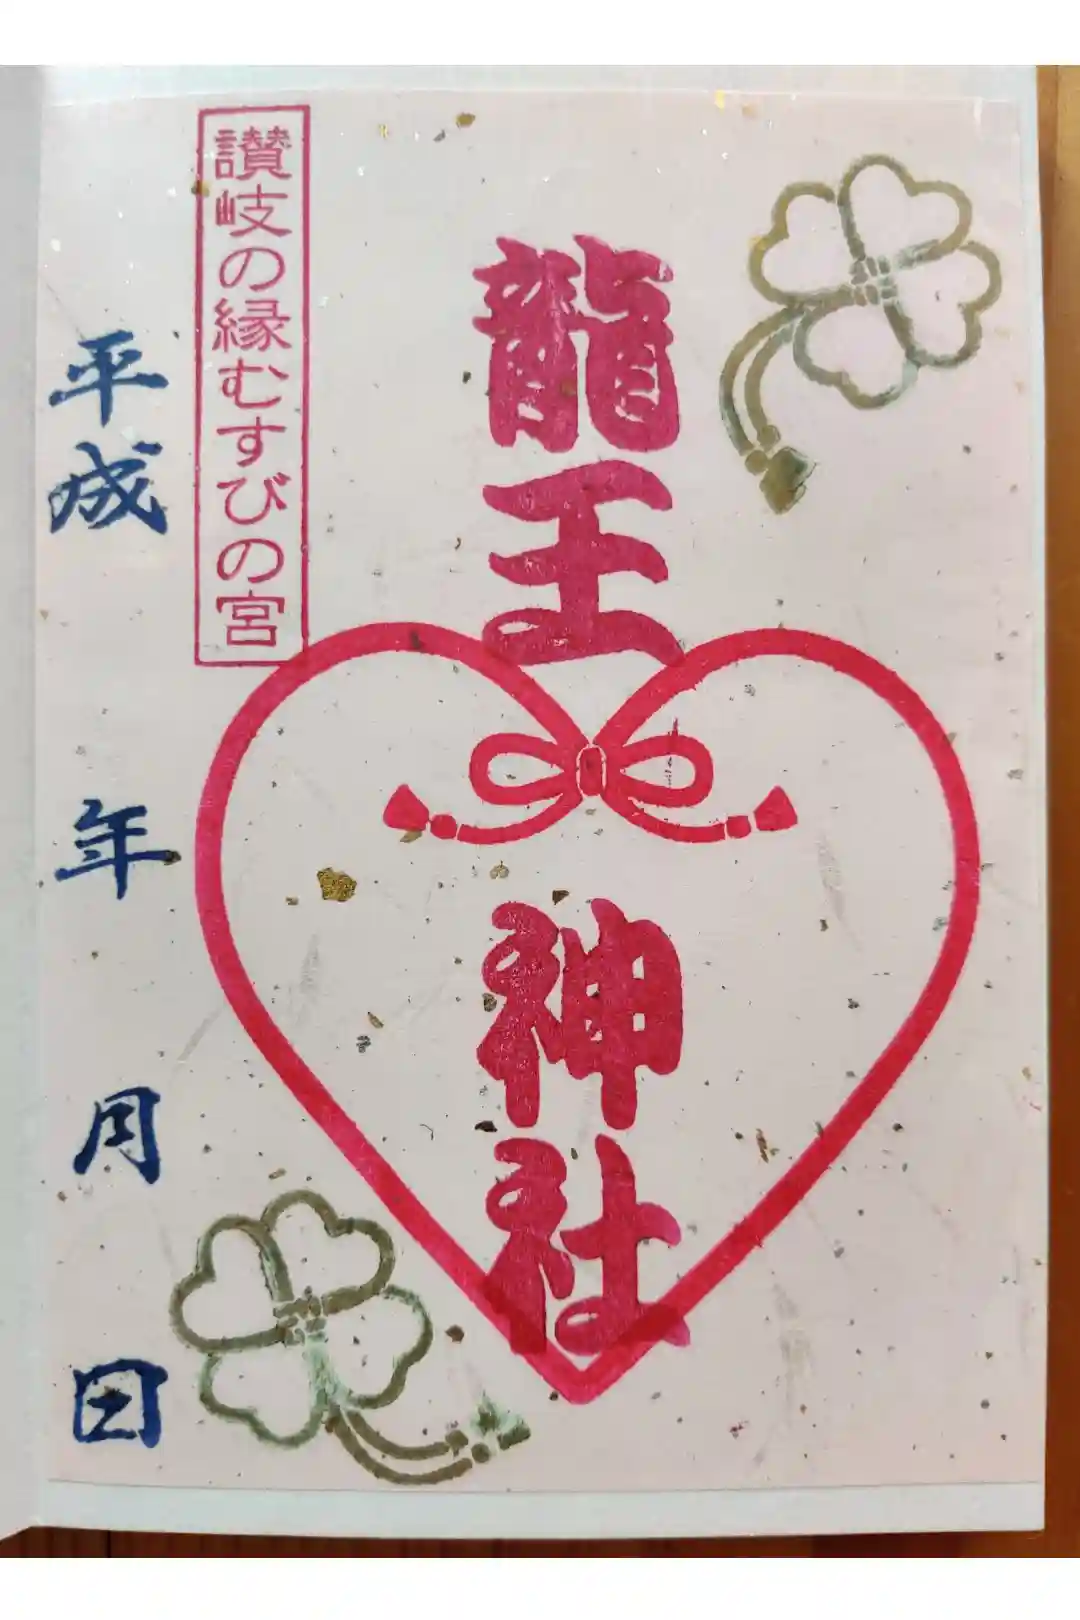 龍王神社
讃岐の縁むすびの宮
平成 年 月 日